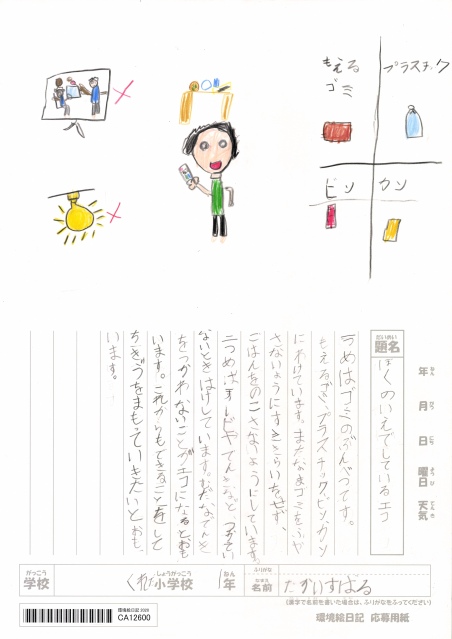 もえる
ゴミ
プラスチック
ビン
カン
だいめい
題名
ぼくのいえでしているエコ
年
ねん
月
がつ
日
にち
曜日
ようび
天気
てんき
1つめはゴミのぶんべつです。
もえるゴミ、プラスチック、ビン、カン
にわけています。またなまゴミをふや
さないようにすききらいをせず、
ごはんをのこさないようにしています。
二つめは、
でんきなど、つかって
ないときはけしています。むだなでんき
をつかわないことがエコになるとおも
います。これからもできることをして
ちきゅうをまもっていきたいとおも
います。
がっこう
学校
しょうがっこう
小学校
1年
ねん
ふりがな
なまえ
名前
すばる
(漢字で名前を書いた場合は、ふりがなをふってください)
環境絵日記 2020
CA12600
環境絵日記 応募用紙